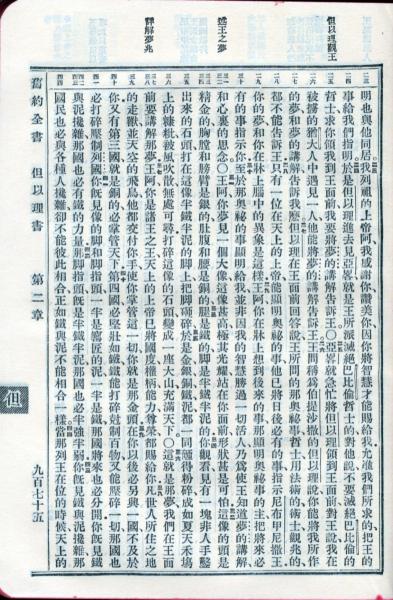 但以理觀王
述王之夢
詳解夢兆
明也與他同居我列祖的上帝阿我感謝你讚美你因你將智慧才能賜給我允准我們所求的把王的
事給我們指明於是但以理進去見亞略就是王所派滅絕巴比倫哲士的對他說不要滅絕巴比倫的
哲士求你領我到王面前我要將夢的講解告訴王〇亞略就急忙將但以理領到王面前對王說我在
被擄的猶大人中遇見一人他能將夢的講解告訴王王問稱爲伯提沙撒的但以理說你能將我所作
的夢和夢的講解告訴我麼但以理在王面前回答說王所問的那奧祕事哲士用法術的術士觀兆的
都不能告訴王只有一位在天上的上帝能顯明奧祕的事他已將日後必有的事指示尼布甲尼撒王
你的夢和你在牀上腦中的異象是這樣王阿你在牀上想到後來的事那顯明奧祕事的主把將來必
有的事指示你至於那奧祕的事顯明給我並非因我的智慧勝過一切活人乃爲使王知道夢的講解
和心裏的思念〇王阿你夢見一個大像這像甚高極其光耀站在你面前形狀甚是可怕這像的頭是
精金的胸膛和膀臂是銀的肚腹和腰是銅的腿是鐵的脚是半鐵半泥的你觀看見有一塊非人手鑿
出來的石頭打在這像半鐵半泥的脚上把脚砸碎於是金銀銅鐵泥都一同砸得粉碎成如夏天禾塲
上的糠粃被風吹散無處可尋打碎這像的石頭變成一座大山充滿天下〇這就是那夢我們在王面
前要講解那夢王阿你是諸王之王天上的上帝已將國度權柄能力尊榮都賜給你凡世人所住之地
的走獸並天空的飛鳥他都交付你手使你掌管這一切你就是那金頭在你以後必另興一國不及於
你又有第三國就是銅的必掌管天下第四國必堅壯如鐵鐵能打碎尅制百物又能壓碎一切那國也
必打碎壓制列國你旣見像的脚和脚指頭一半是窰匠的泥一半是鐵那國將來也必分開你旣見鐵
與泥攙雜那國也必有鐵的力量那脚指頭旣是半鐵半泥那國也必半強半弱你旣見鐵與泥攙雜那
國民也必與各種人攙雜卻不能彼此相合正如鐵與泥不能相合一樣當那列王在位的時候天上的
舊約全書 但以理書 第二章 九百七十五
但